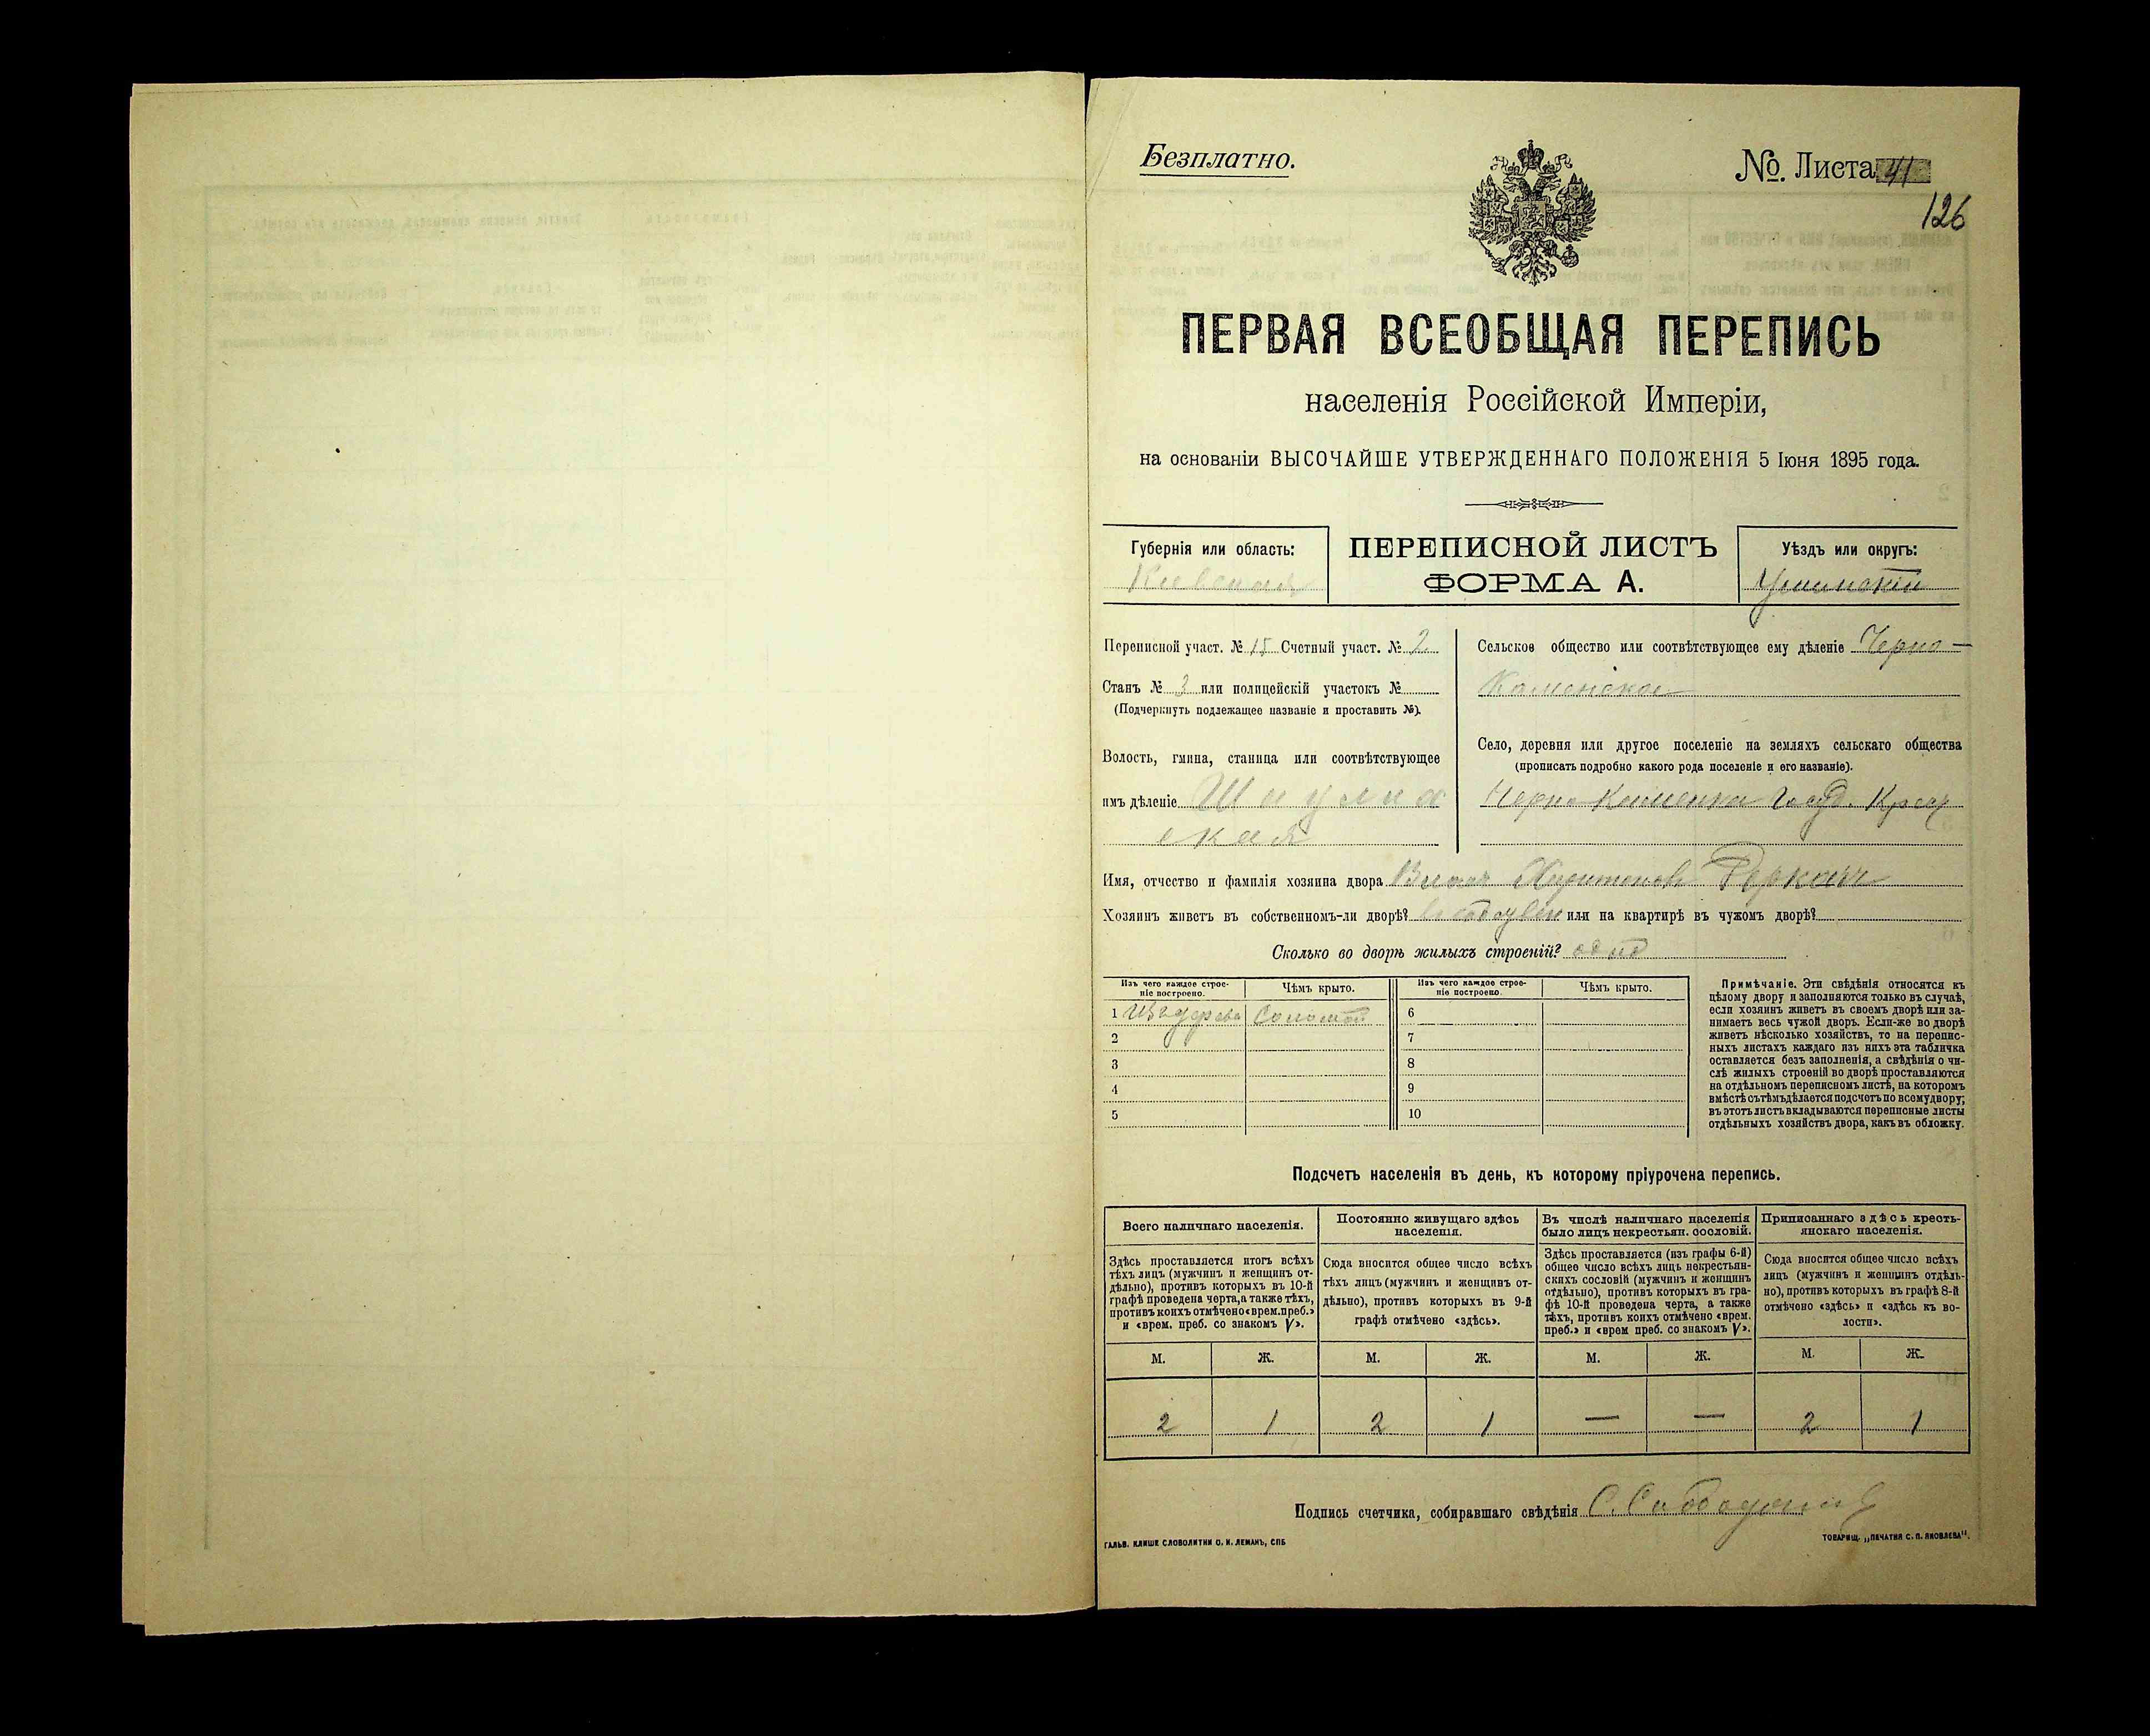 Безплатно.
№. Листа 41
126
ПЕРВАЯ ВСЕОБЩАЯ ПЕРЕПИСЬ
населенія Россійской Имперіи,
на основаніи ВЫСОЧАЙШЕ УТВЕРЖДЕННАГО ПОЛОЖЕНІЯ 5 Іюня 1895 года.
Губернія или область:
Киевская
ПЕРЕПИСНОЙ ЛИСТЪ
ФОРМА А.
Уѣздъ или округъ:
Уманскій
Переписной участ. № 15 Счетный участ. № 2
Станъ № 3 или полицейскій участокъ №
(Подчеркнуть подлежащее названіе и проставить №).
Волость, гмина, станица или соотвѣтствующее
имъ дѣленіе
ская
Сельское общество или соотвѣтствующее ему дѣленіе Черно-
Каменское
Село, деревня или другое поселеніе на земляхъ сельскаго общества
(прописать подробно какого рода поселеніе и его названіе).
Черно Каменка Госуд. Крест
Имя, отчество и фамилія хозяина двора Харитоновъ
Хозяинъ живетъ въ собственномъ-ли дворѣ? или на квартирѣ въ чужомъ дворѣ?
Сколько во дворѣ жилыхъ строеній? одно
Изъ чего каждое строе-
ніе построено.
Чѣмъ крыто.
Изъ чего каждое строе-
ніе построено.
Чѣмъ крыто.
1 Изъ дерева Соломой
2
3
4
5
6
7
8
9
10
Примѣчаніе. Эти свѣдѣнія относятся къ
цѣлому двору и заполняются только въ случаѣ,
если хозяинъ живетъ въ своемъ дворѣ или за-
нимаетъ весь чужой дворъ. Если-же во дворѣ
живетъ нѣсколько хозяйствъ, то на перепис-
ныхъ листахъ каждаго изъ нихъ эта табличка
оставляется безъ заполненія, а свѣдѣнія о чи-
слѣ жилыхъ строеній во дворѣ проставляются
на отдѣльномъ переписномъ листѣ, на которомъ
вмѣстѣ съ тѣмъ дѣлается подсчетъ по всему двору;
въ этотъ листъ вкладываются переписные листы
отдѣльныхъ хозяйствъ двора, какъ въ обложку.
Подсчетъ населенія въ день, къ которому пріурочена перепись.
Всего наличнаго населенія.
Здѣсь проставляется итогъ всѣхъ
тѣхъ лицъ (мужчинъ и женщинъ от-
дѣльно), противъ которыхъ въ 10-й
графѣ проведена черта, а также тѣхъ,
противъ коихъ отмѣчено «врем. преб.»
и «врем. преб. со знакомъ V».
Постоянно живущаго здѣсь
населенія.
Сюда вносится общее число всѣхъ
тѣхъ лицъ (мужчинъ и женщинъ от-
дѣльно), противъ которыхъ въ 9-й
графѣ отмѣчено «здѣсь».
Въ числѣ наличнаго населенія
было лицъ некрестьян. сословій.
Здѣсь проставляется (изъ графы 6-й)
общее число всѣхъ лицъ некрестьян-
скихъ сословій (мужчинъ и женщинъ
отдѣльно), противъ которыхъ въ гра-
фѣ 10-й проведена черта, а также
тѣхъ, противъ коихъ отмѣчено «врем.
преб.» и «врем преб. со знакомъ V».
Приписаннаго здѣсь кресть-
янскаго населенія.
Сюда вносится общее число всѣхъ
лицъ (мужчинъ и женщинъ отдѣль-
но), противъ которыхъ въ графѣ 8-й
отмѣчено «здѣсь» и «здѣсь къ во-
лости».
М. Ж. М. Ж. М. Ж. М. Ж.
2 1 2 1 — — 2 1
Подпись счетчика, собиравшаго свѣдѣнія
ГАЛЬВ. КЛИШЕ СЛОВОЛИТНИ О. И. ЛЕМАНЪ, СПБ
ТОВАРИЩ. „ПЕЧАТНЯ С. П. ЯКОВЛЕВА".